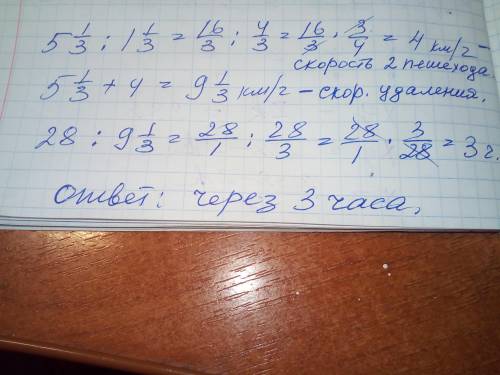 5 1/3 : 1 1/3 = 16/3 : 4/3 = 16/3 · 3/4 = 4 км/г –
скорость 2 пешехода
5 1/3 + 4 = 9 1/3 км/г – скор. удаления.
28 : 9 1/3 = 28/1 : 28/3 = 28/1 · 3/28 = 3 г.
ответ: через 3 часа.